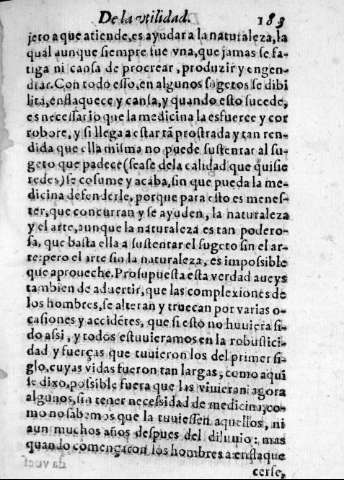 De la vtilidad. 183
jeto a que atiende, es ayudar a la naturaleza, la
qual aunque siempre fue vna, que jamas se fa-
tiga ni cansa de procrear, produzir y engen-
drar. Con todo esso, en algunos sugetos se debi
lita, enflaquece y cansa, y quando esto sucede,
es necessario que la medicina la esfuerce y cor
robore, y si llega a estar tã prostrada y tan ren-
dida que ella misma no puede sustentar al su-
geto que padece (sease de la calidad que quisie
redes) se cõsume y acaba, sin que pueda la me-
dicina defenderle, porque para esto es menes-
ter, que concurran y se ayuden, la naturaleza
y el arte, aunque la naturaleza es tan podero-
sa, que basta ella a sustentar el sugeto sin el ar-
te: pero el arte sin la naturaleza, es impossible
que aproueche. Prosupuesta esta verdad aueys
tambien de aduertir, que las complexiones de
los hombres, se alteran y truecan por varias o-
casiones y accidẽtes, que si esto no huuiera si-
do assi, y todos estuuieramos en la robustici-
dad y fuerças que tuuieron los del primer si-
glo, cuyas vidas fueron tan largas, como aqui
se dixo, possible fuera que las viuieran agora
algunos, sin tener necessidad de medicina, co-
mo no sabemos que la tuuiessen aquellos, ni
aun muchos años despues del diluuio: mas
quando començaron los hombres a enflaque
cerse,